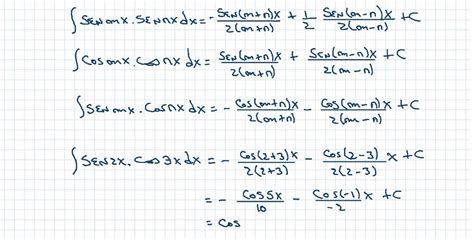 ∫ Sen mx . Sen nx dx = - Sen(m+n)x / 2(m+n) + 1/2 Sen(m-n)x / 2(m-n) + C
∫ Cos mx . Cos nx dx = Sen(m+n)x / 2(m+n) + Sen(m-n)x / 2(m-n) + C
∫ Sen mx . Cos nx dx = - Cos(m+n)x / 2(m+n) - Cos(m-n)x / 2(m-n) + C
∫ Sen 2x . Cos 3x dx = - Cos(2+3)x / 2(2+3) - Cos(2-3)x / 2(2-3) + C
= - Cos 5x / 10 - Cos(-1)x / -2 + C
= Cos